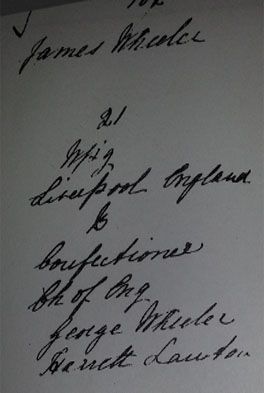 James Wheeler
21
Liverpool England
B
Confectioner
Ch of Eng
George Wheeler
Harrett Lawton